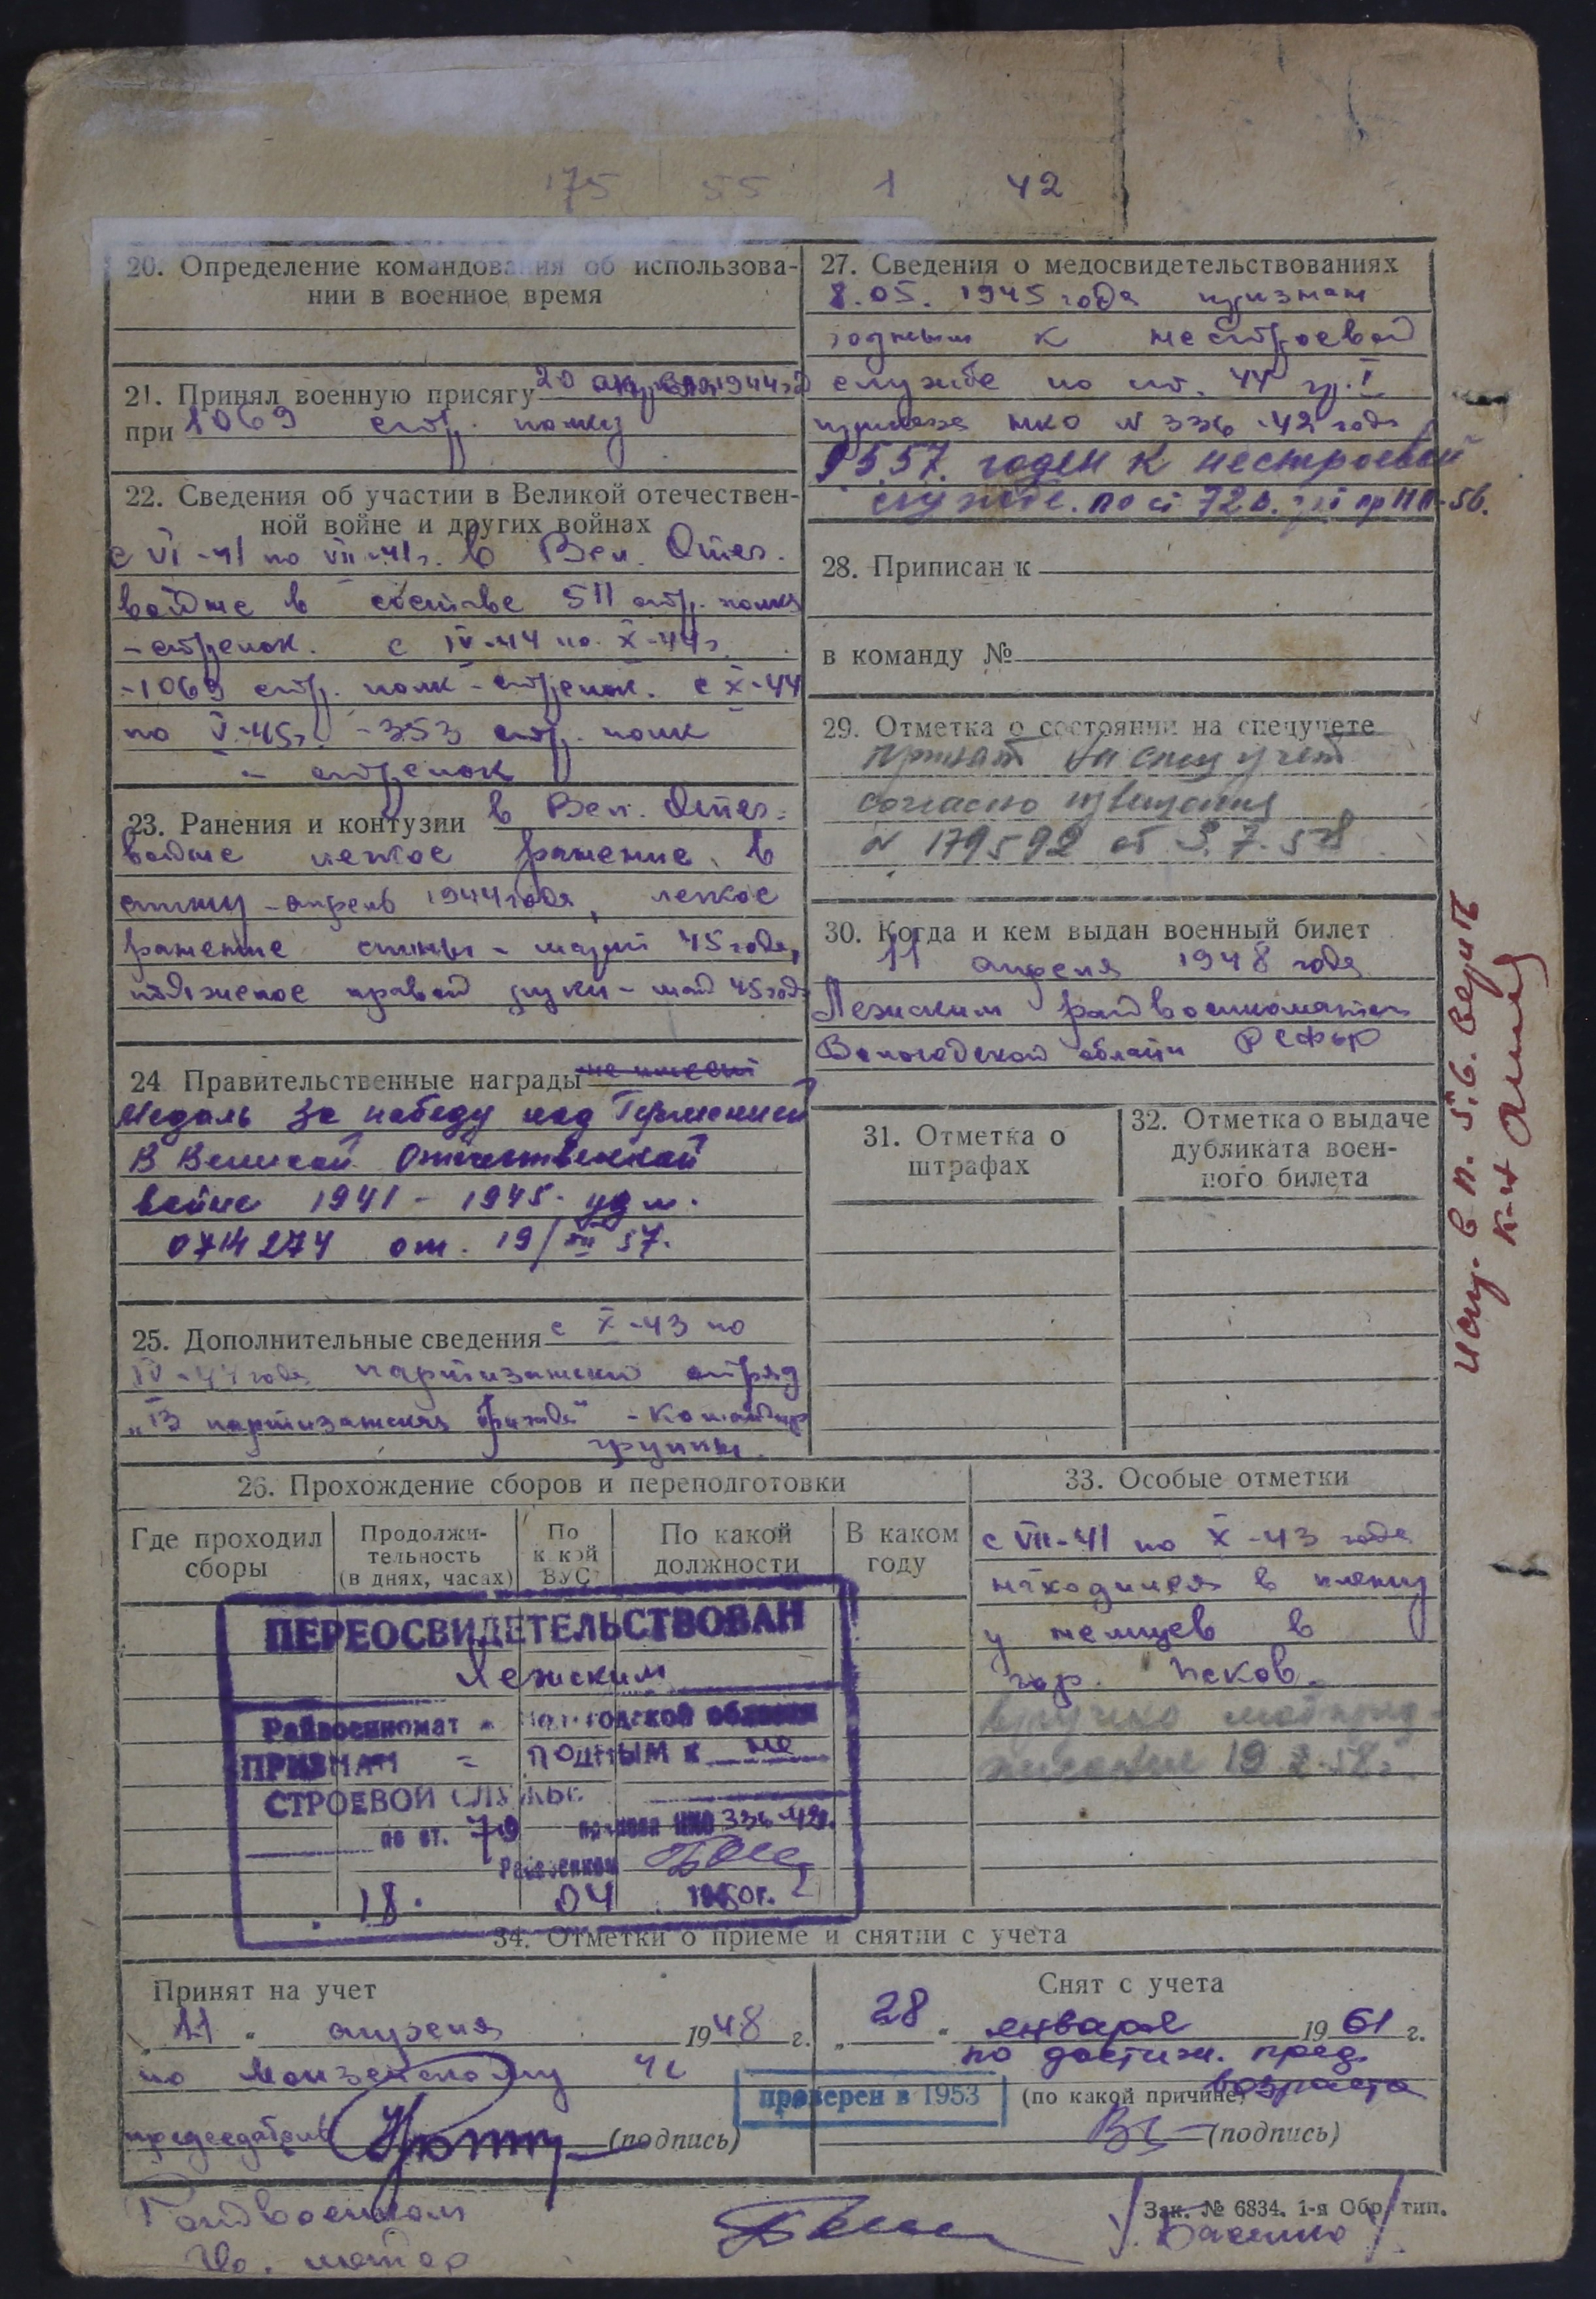 175 55 1 42
20. Определение командования об использова-
нии в военное время
21. Принял военную присягу 20 апреля 1944 г.
при 1069 стр. полку
22. Сведения об участии в Великой отечествен-
ной войне и других войнах
с VI-41 по VII-41г. в Вел. Отеч.
войне в составе 511 стр. полка
- стрелок. с IV-44 по X-44г.
- 1069 стр. полк - стрелок. с X-44
по V-45г. - 353 стр. полк
- стрелок
23. Ранения и контузии в Вел. Отеч.
войне легкое ранение в
спину - апрель 1944 года, легкое
ранение спины - март 45 года,
тяжелое правой руки - май 45 года
24. Правительственные награды не имеет
Медаль За победу над Германией
В Великой Отечественной
войне 1941 - 1945. уд. №
0714274 от. 19/XII 57.
25. Дополнительные сведения с X-43 по
IV-44 года партизанский отряд
"13 партизанская бригада" - командир
группы.
26. Прохождение сборов и переподготовки
Где проходил
сборы
Продолжи-
тельность
(в днях, часах)
По
какой
ВУС
По какой
должности
В каком
году
ПЕРЕОСВИДЕТЕЛЬСТВОВАН
Лежским
Райвоенкомат Вологодской области
ПРИЗНАН = ГОДНЫМ К не
СТРОЕВОЙ СЛУЖБЕ
по ст. 79 приказа НКО 336-42г.
Райвоенком
18. 04 1950г.
27. Сведения о медосвидетельствованиях
8.05. 1945 года признан
годным к нестроевой
службе по ст. 44 гр. I
приказа НКО № 336-42 года
9 5.57. годен к нестроевой
службе. по ст 72 в. гр I пр -56.
28. Приписан к
в команду №
29. Отметка о состоянии на спецучете
принят на спец учет
согласно извещения
№ 179592 от 5.7.58
30. Когда и кем выдан военный билет
11 апреля 1948 года
Лежским райвоенкоматом
Вологодской области РСФСР
31. Отметка о
штрафах
32. Отметка о выдаче
дубликата воен-
ного билета
33. Особые отметки
с VII-41 по X-43 года
находился в плену
у немцев в
гор. Псков.
вручено мобпред-
писание 19 58г.
34. Отметки о приеме и снятии с учета
Принят на учет
„ 11 “ апреля 1948 г.
по
председатель (подпись)
Снят с учета
„ 28 “ января 1961 г.
по достиж. пред.
возраста
(по какой причине)
(подпись)
проверен в 1953
Райвоенком
майор
Зак. № 6834. 1-я Обр. тип.